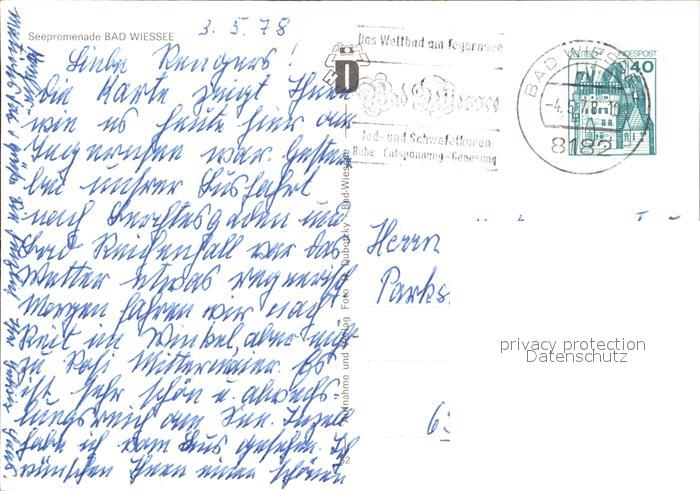 3. 5. 78
Seepromenade BAD WIESSEE
Liebe Rengers!
Die Karte zeigt Ihnen
wie es heute hier am
Tegernsee war. Gestern
bei unserer Ausfahrt
nach Berchtesgaden und
Bad Reichenhall war das
Wetter etwas regnerisch
Morgen fahren wir nach
Reit im Winkel, aber nicht
zu Rosi Mittermaier. Es
ist sehr schön u. abwechs-
lungsreich am See. Inzell
habe ich vom Bus gesehen. Ich
wünschen Ihnen einen schönen
Das Weltbad am Tegernsee
Bad Wiessee
Jod- und Schwefelkuren
Ruhe - Entspannung - Genesung
BAD WIESSEE
-4.5.78-10
8182
DEUTSCHE BUNDESPOST
40
Aufnahme und Verlag Foto Dubotzky Bad-Wiessee
Herrn
Parks
privacy protection
Datenschutz